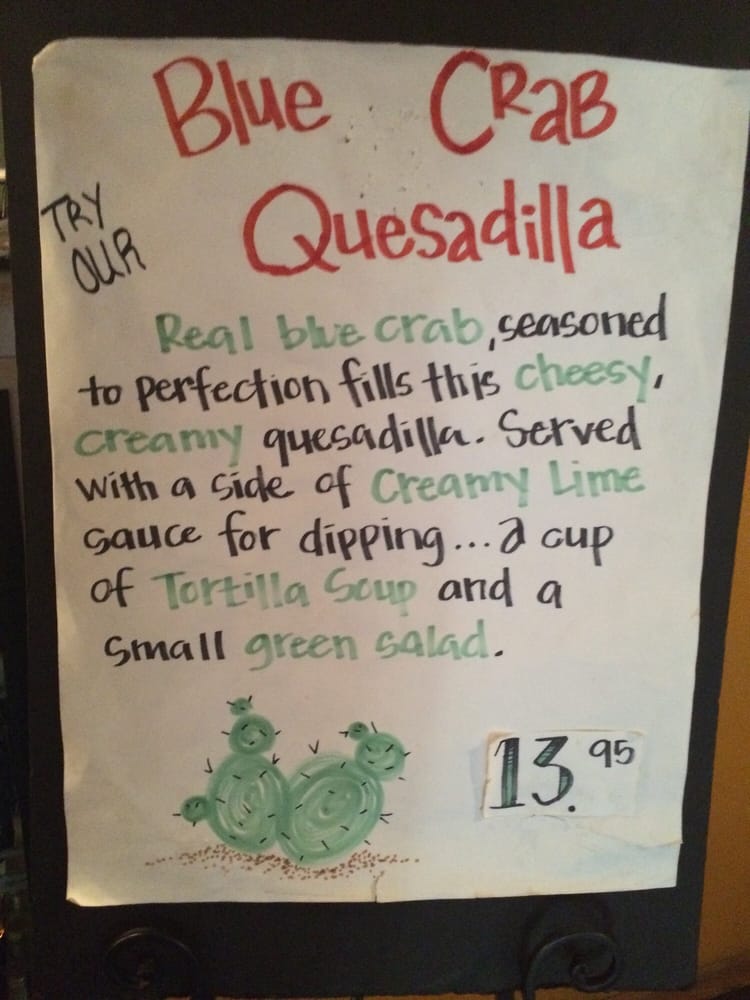 Blue Crab
TRY
OUR
Quesadilla
Real blue crab, seasoned
to perfection fills this cheesy,
creamy quesadilla. Served
with a side of Creamy Lime
sauce for dipping... a cup
of Tortilla Soup and a
small green salad.
13.95